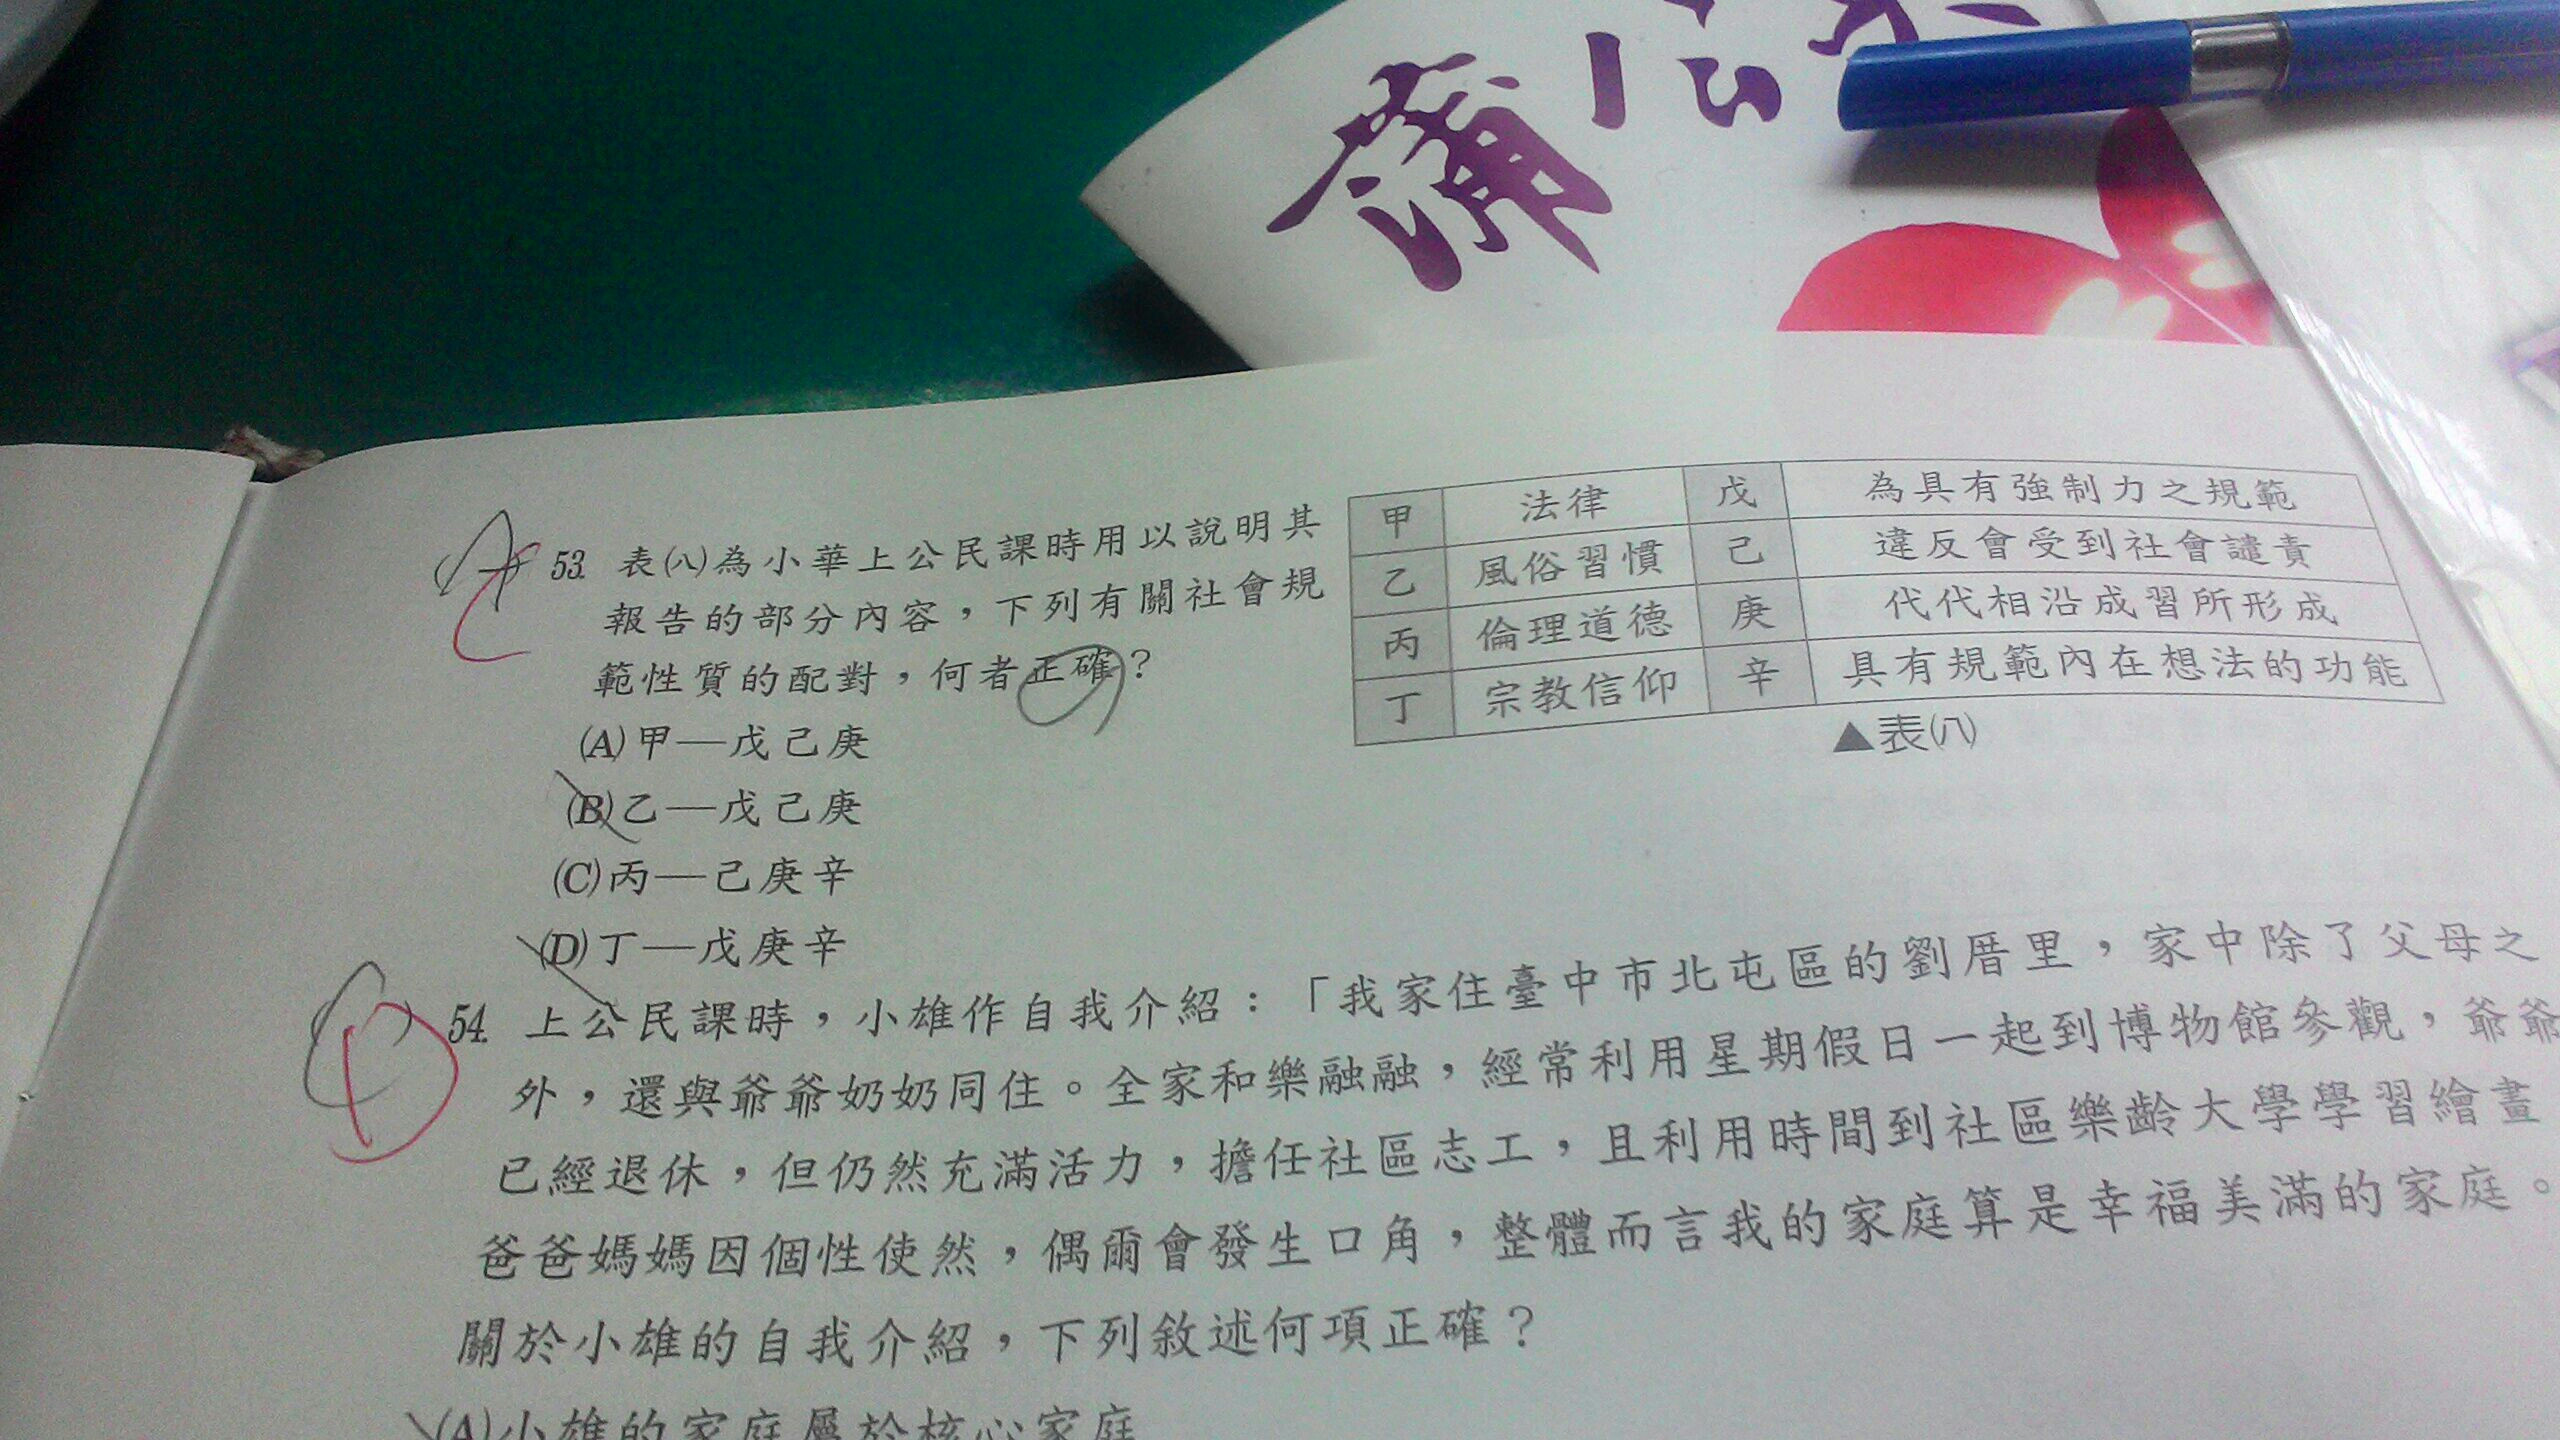 蒲公
53. 表(八)為小華上公民課時用以說明其
報告的部分內容，下列有關社會規
範性質的配對，何者正確？
(A)甲—戊己庚
(B)乙—戊己庚
(C)丙—己庚辛
(D)丁—戊庚辛
甲 法律 戊 為具有強制力之規範
乙 風俗習慣 己 違反會受到社會譴責
丙 倫理道德 庚 代代相沿成習所形成
丁 宗教信仰 辛 具有規範內在想法的功能
▲表(八)
(A) C
( ) D
54. 上公民課時，小雄作自我介紹：「我家住臺中市北屯區的劉厝里，家中除了父母之
外，還與爺爺奶奶同住。全家和樂融融，經常利用星期假日一起到博物館參觀，爺爺
已經退休，但仍然充滿活力，擔任社區志工，且利用時間到社區樂齡大學學習繪畫
爸爸媽媽因個性使然，偶爾會發生口角，整體而言我的家庭算是幸福美滿的家庭。
關於小雄的自我介紹，下列敘述何項正確？
(A)小雄的家庭屬於核心家庭